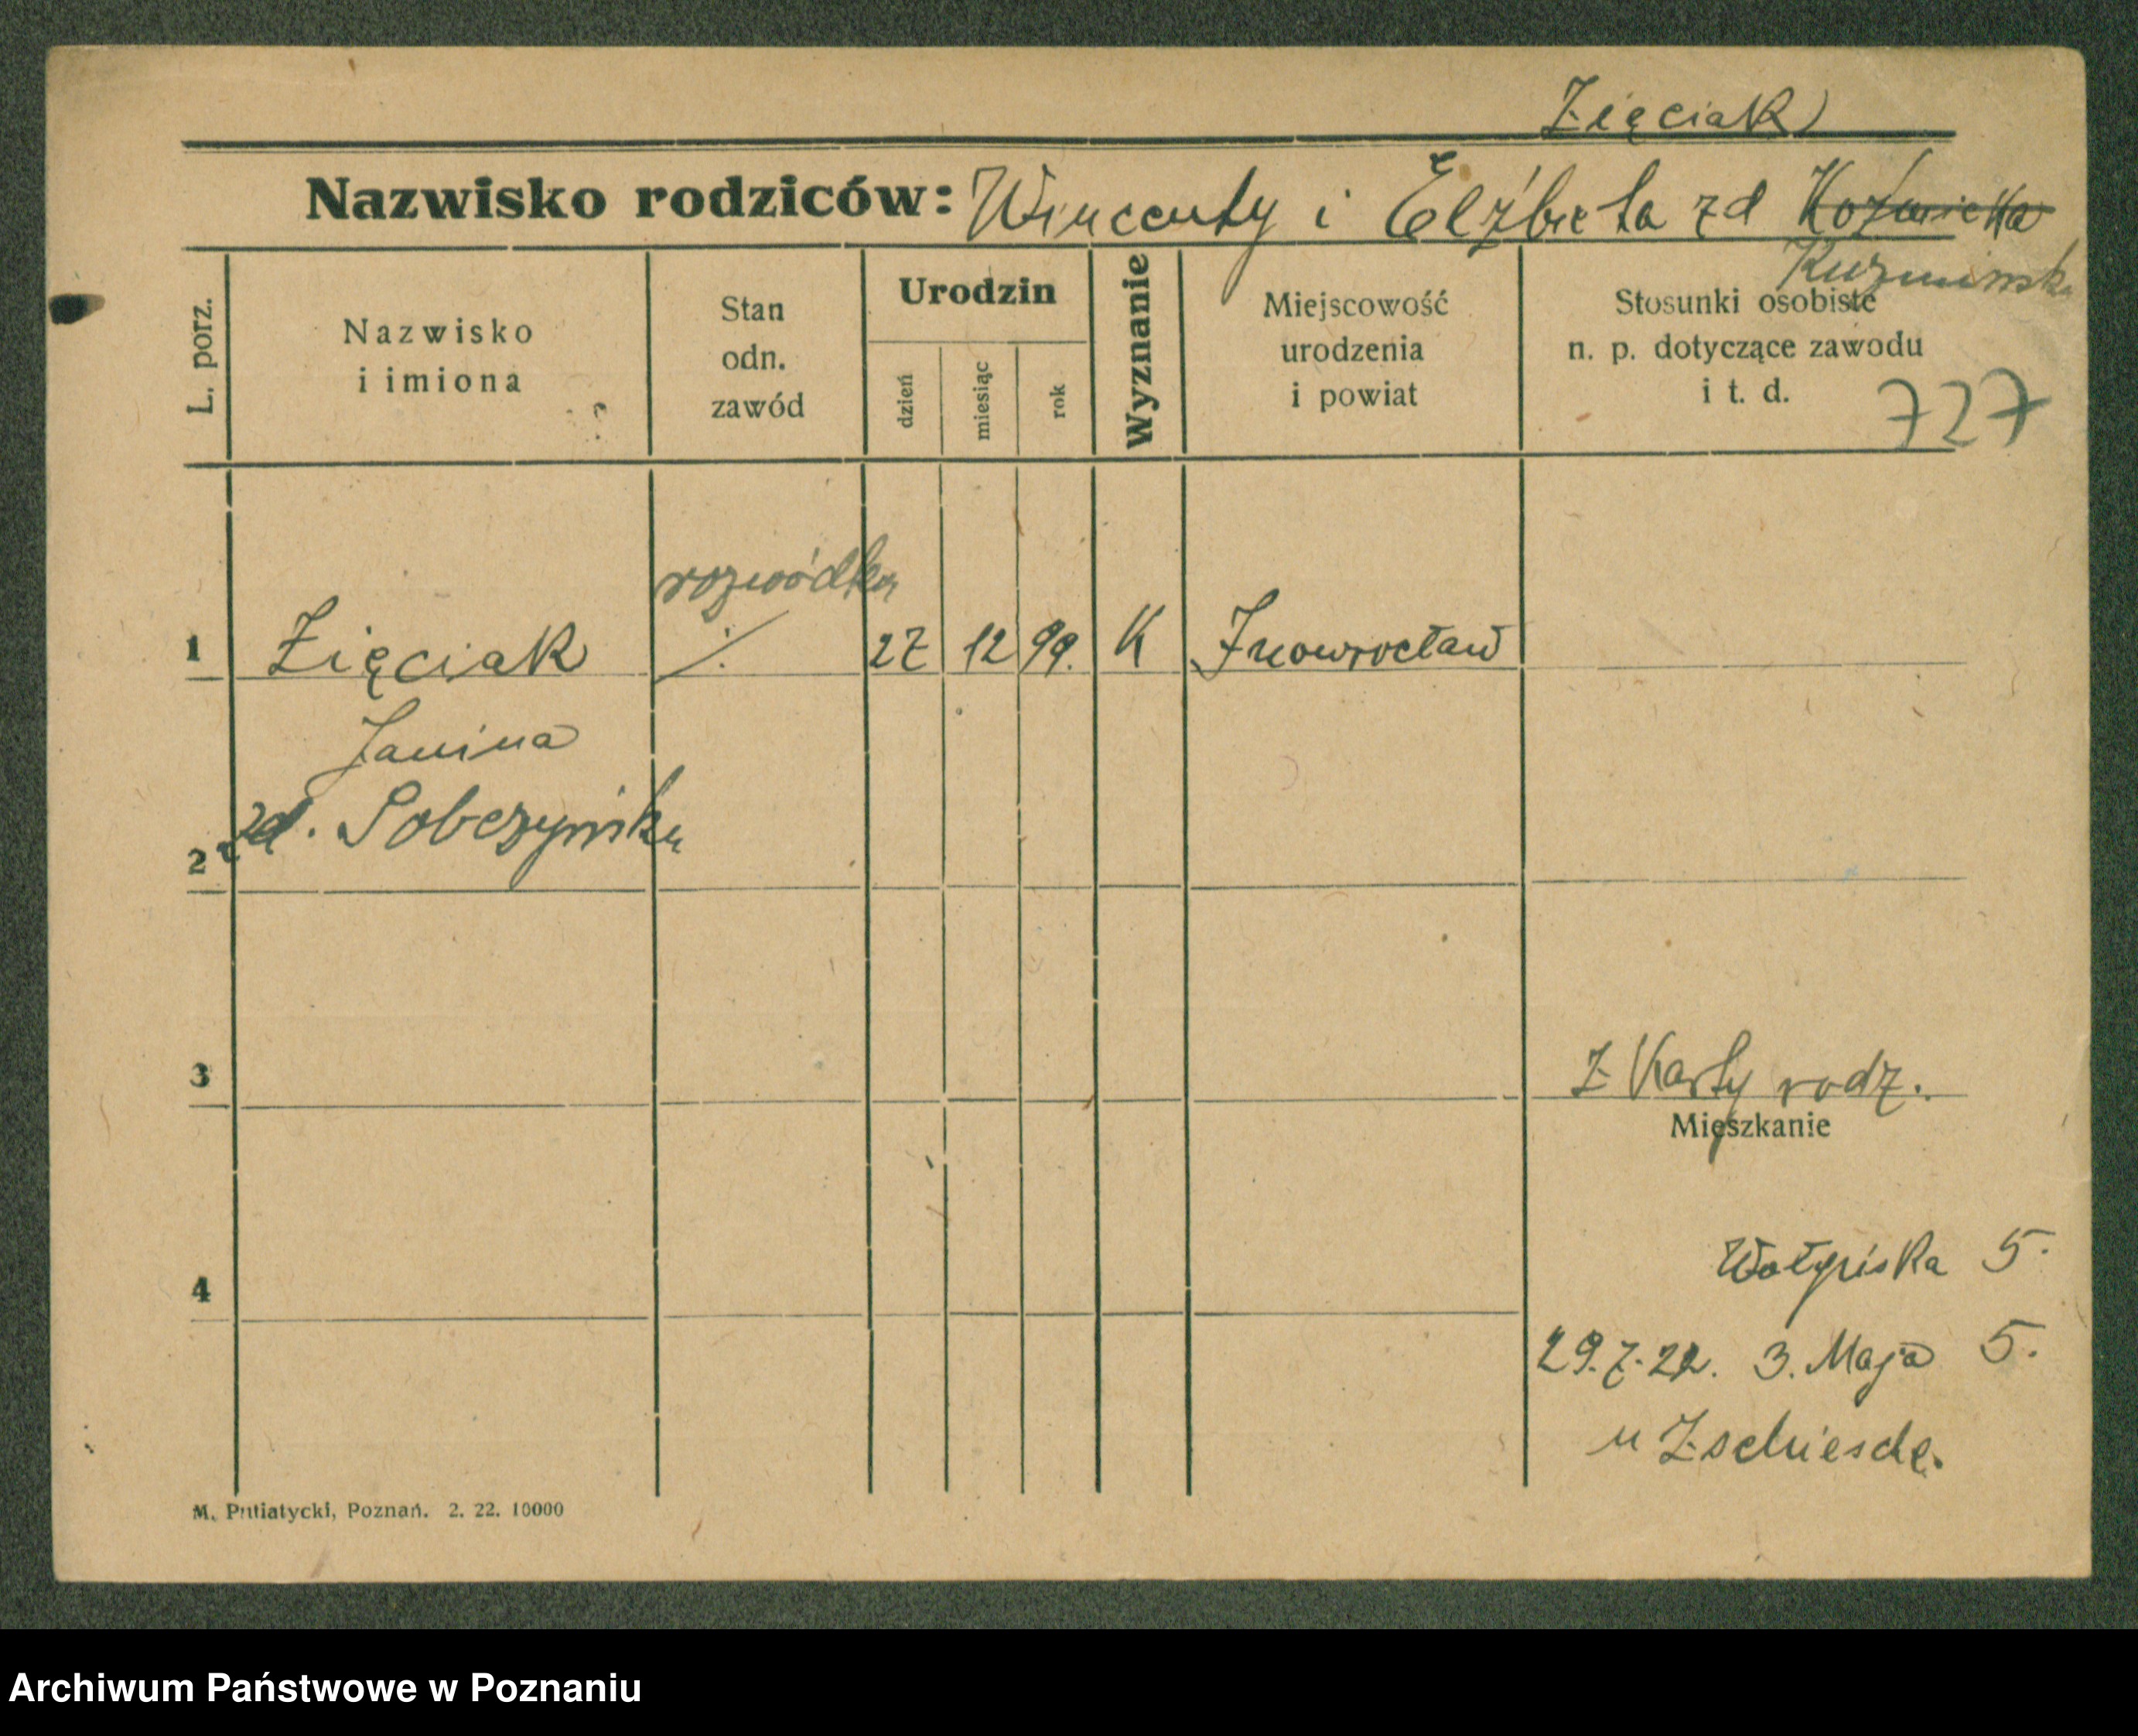 Zięciak
Nazwisko rodziców: Wincenty i Elżbieta zd
Kuzminska
L. porz.
Nazwisko
i imiona
Stan
odn.
zawód
Urodzin
dzień
miesiąc
rok
Wyznanie
Miejscowość
urodzenia
i powiat
Stosunki osobiste
n. p. dotyczące zawodu
i t. d.
727
rozwódka
1 Zięciak ./. 27 12 99. K Inowrocław
Janina
zd. Sobczyńska
2
3
Z Karty rodz.
Mieszkanie
4
Wołyńska 5.
29.7.22. 3. Maja 5.
u Zschiesche.
M. Putiatycki, Poznań. 2. 22. 10000
Archiwum Państwowe w Poznaniu